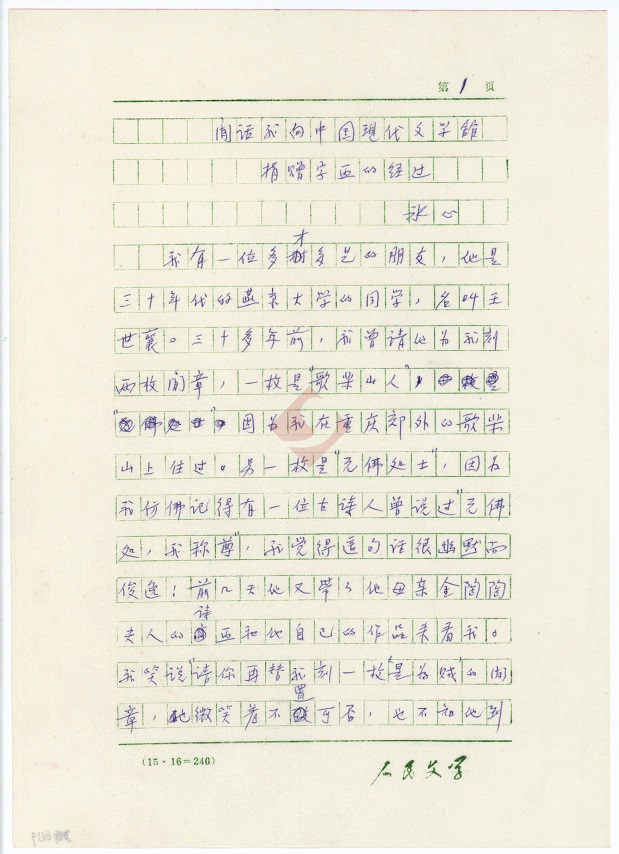 第1页
闲话我向中国现代文学馆
捐赠字画的经过
冰心
我有一位多才多艺的朋友，他是
三十年代的燕京大学的同学，名叫王
世襄。三十多年前，我曾请他为我刻
两枚闲章，一枚是“歌柴山人”，
因为我在重庆郊外的歌柴
山上住过。另一枚是“无佛处士”，因为
我仿佛记得有一位古诗人曾说过“无佛
处，我称尊”，我觉得这句话很幽默而
俊逸；前几天他又带了他母亲金陶陶
夫人的诗画和他自己的作品来看我。
我笑说“请你再替我刻一枚‘是为贼’的闲
章，他微笑着不置可否，也不知他到
(15·16=240)
人民文学